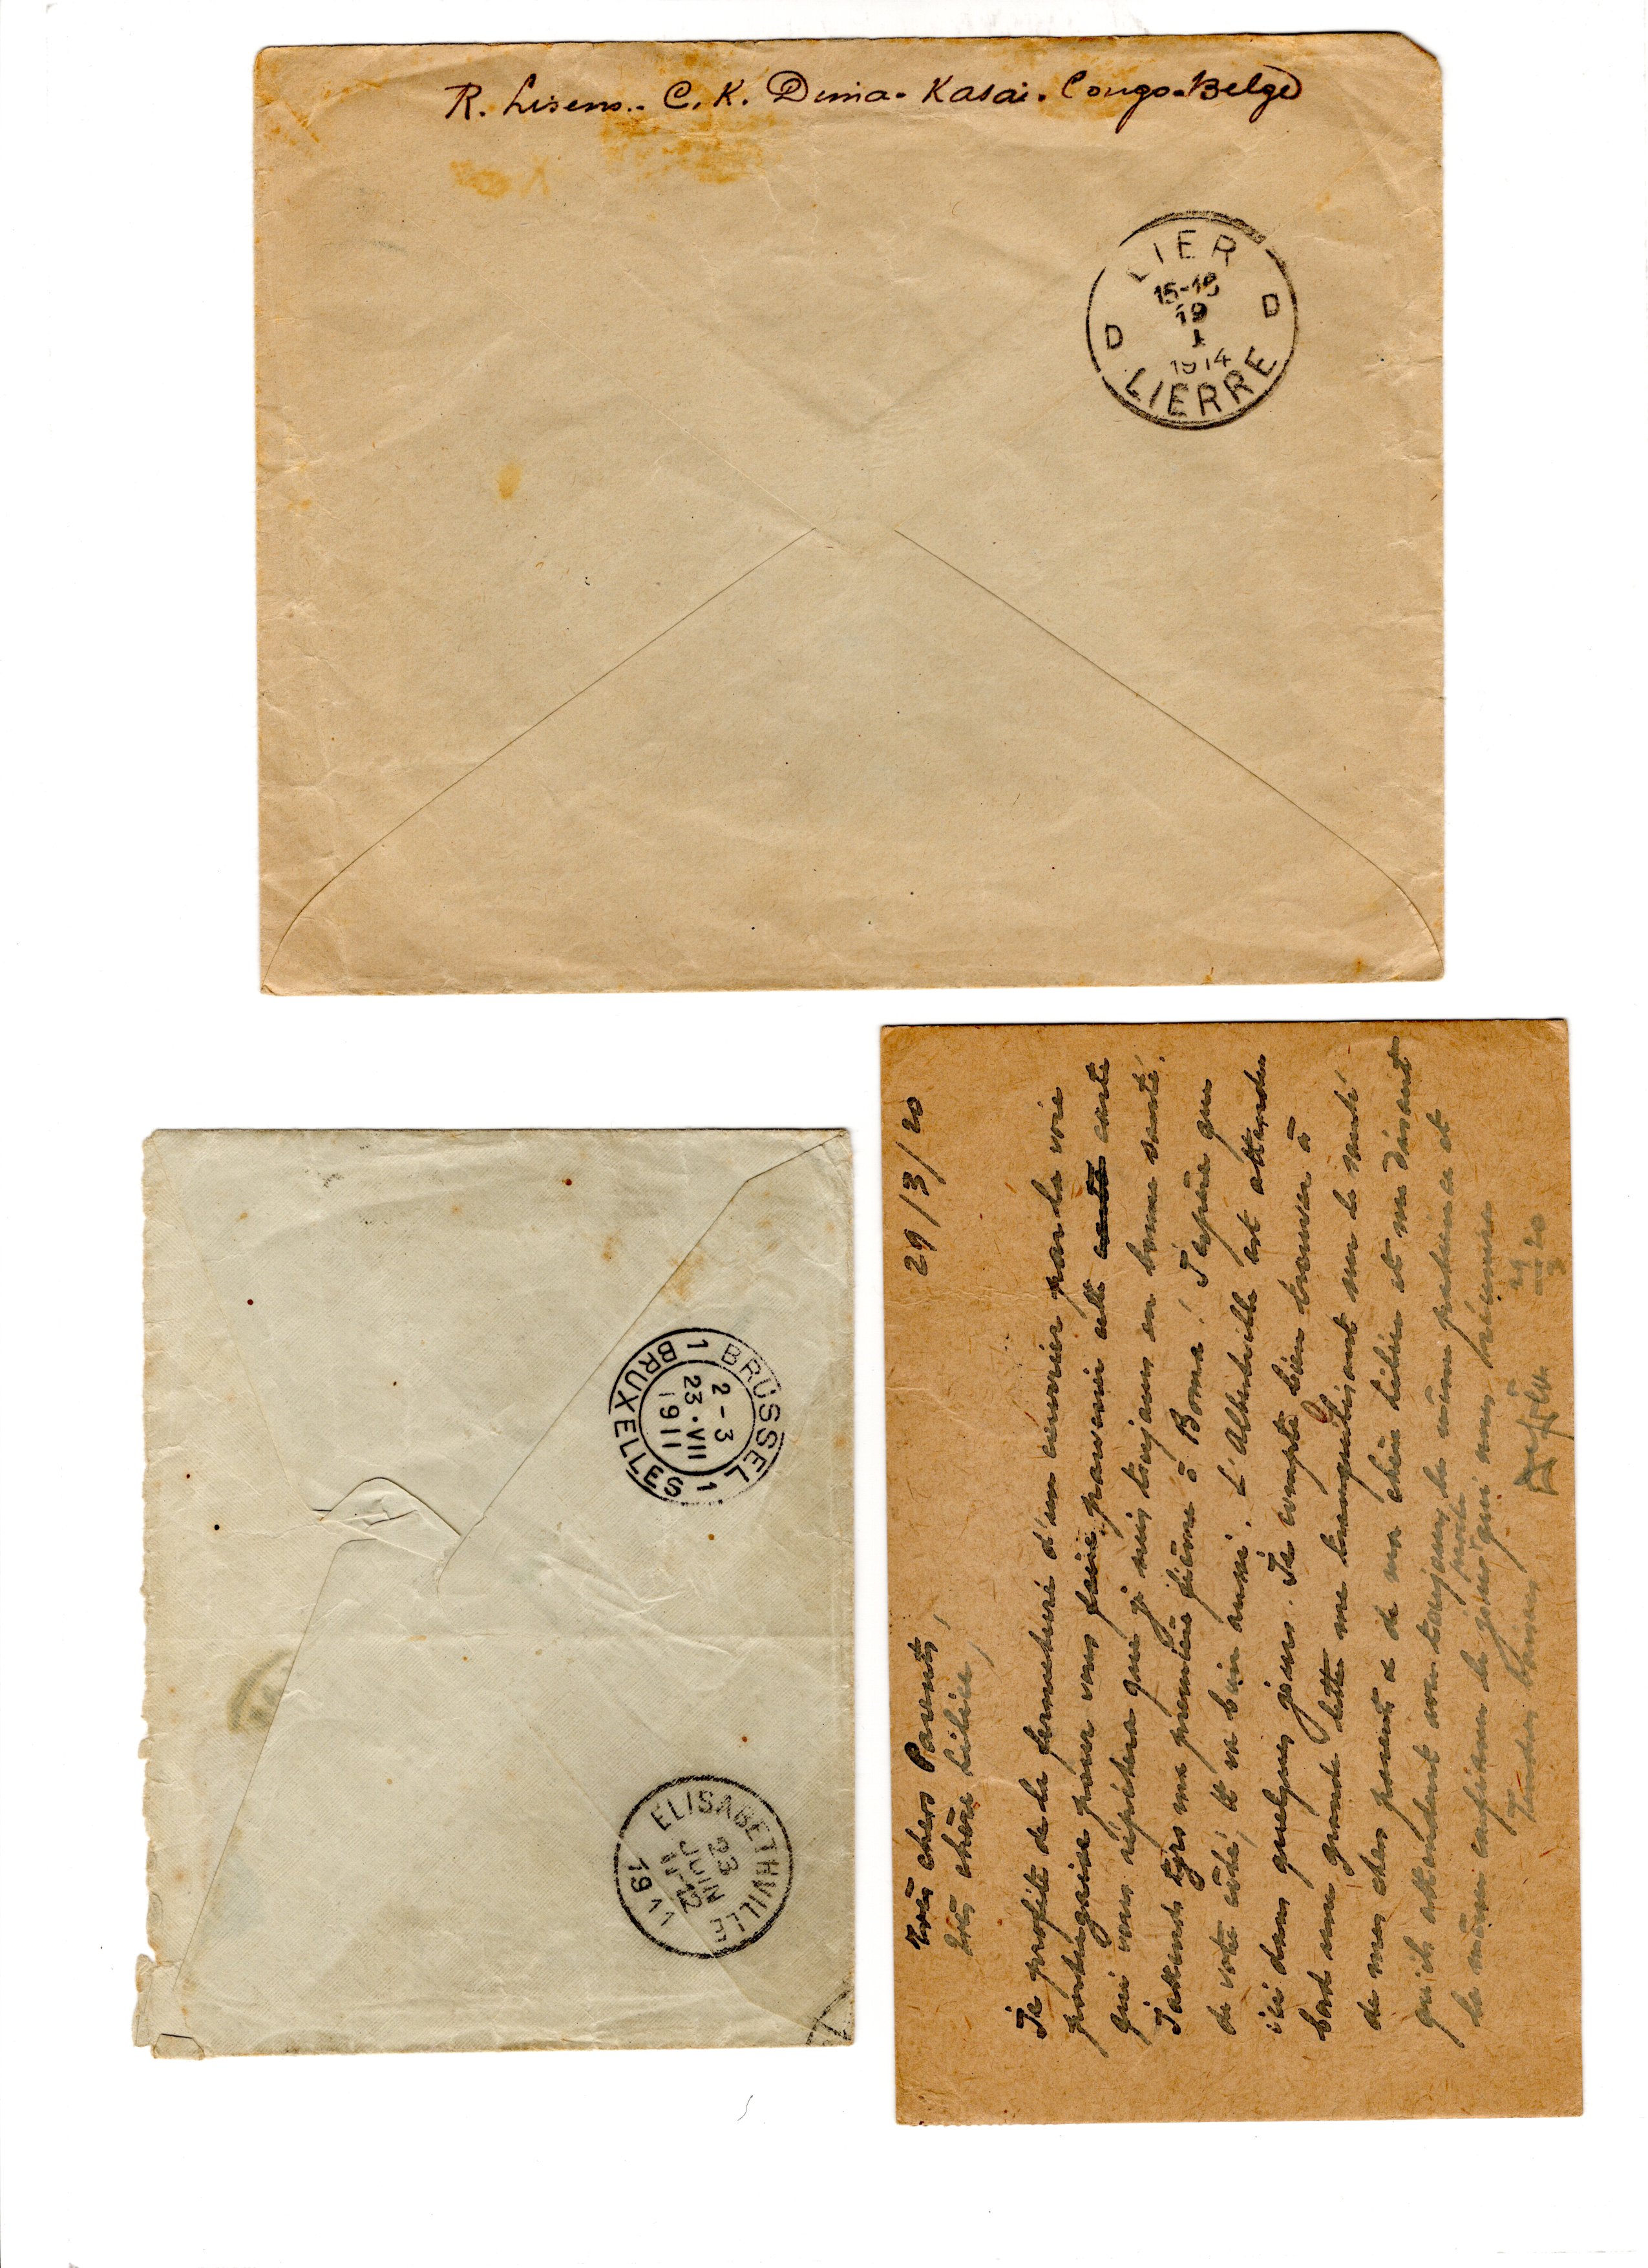 R. Lisens.- C. K. Dima- Kasaï. Congo-Belge
LIER
15-16
19
I
1914
D D
LIERRE
1 BRUSSEL 1
2-3
23·VII
1911
BRUXELLES
ELISABETHVILLE
23
JUIN
11-12
1911
29/3/20
Très chers Parents,
Très chère Lilière,
Je profite de la fermeture d'un courrier par la voie
portugaise pour vous faire parvenir cette carte
qui vous répètera que je suis toujours en bonne santé.
J'attends dès ma première fièvre à Boma! J'espère que
de votre côté, il va bien aussi. L'Albertville est attendu
ici dans quelques jours. Je compte bien trouver à
bord une grande lettre me tranquillisant sur la santé
de mes chers parents & de ma chère Lilière et me disant
qu'ils attendent avec toujours la même patience et
la même confiance le jour qui nous réunira
Tendres baisers
29
3 20